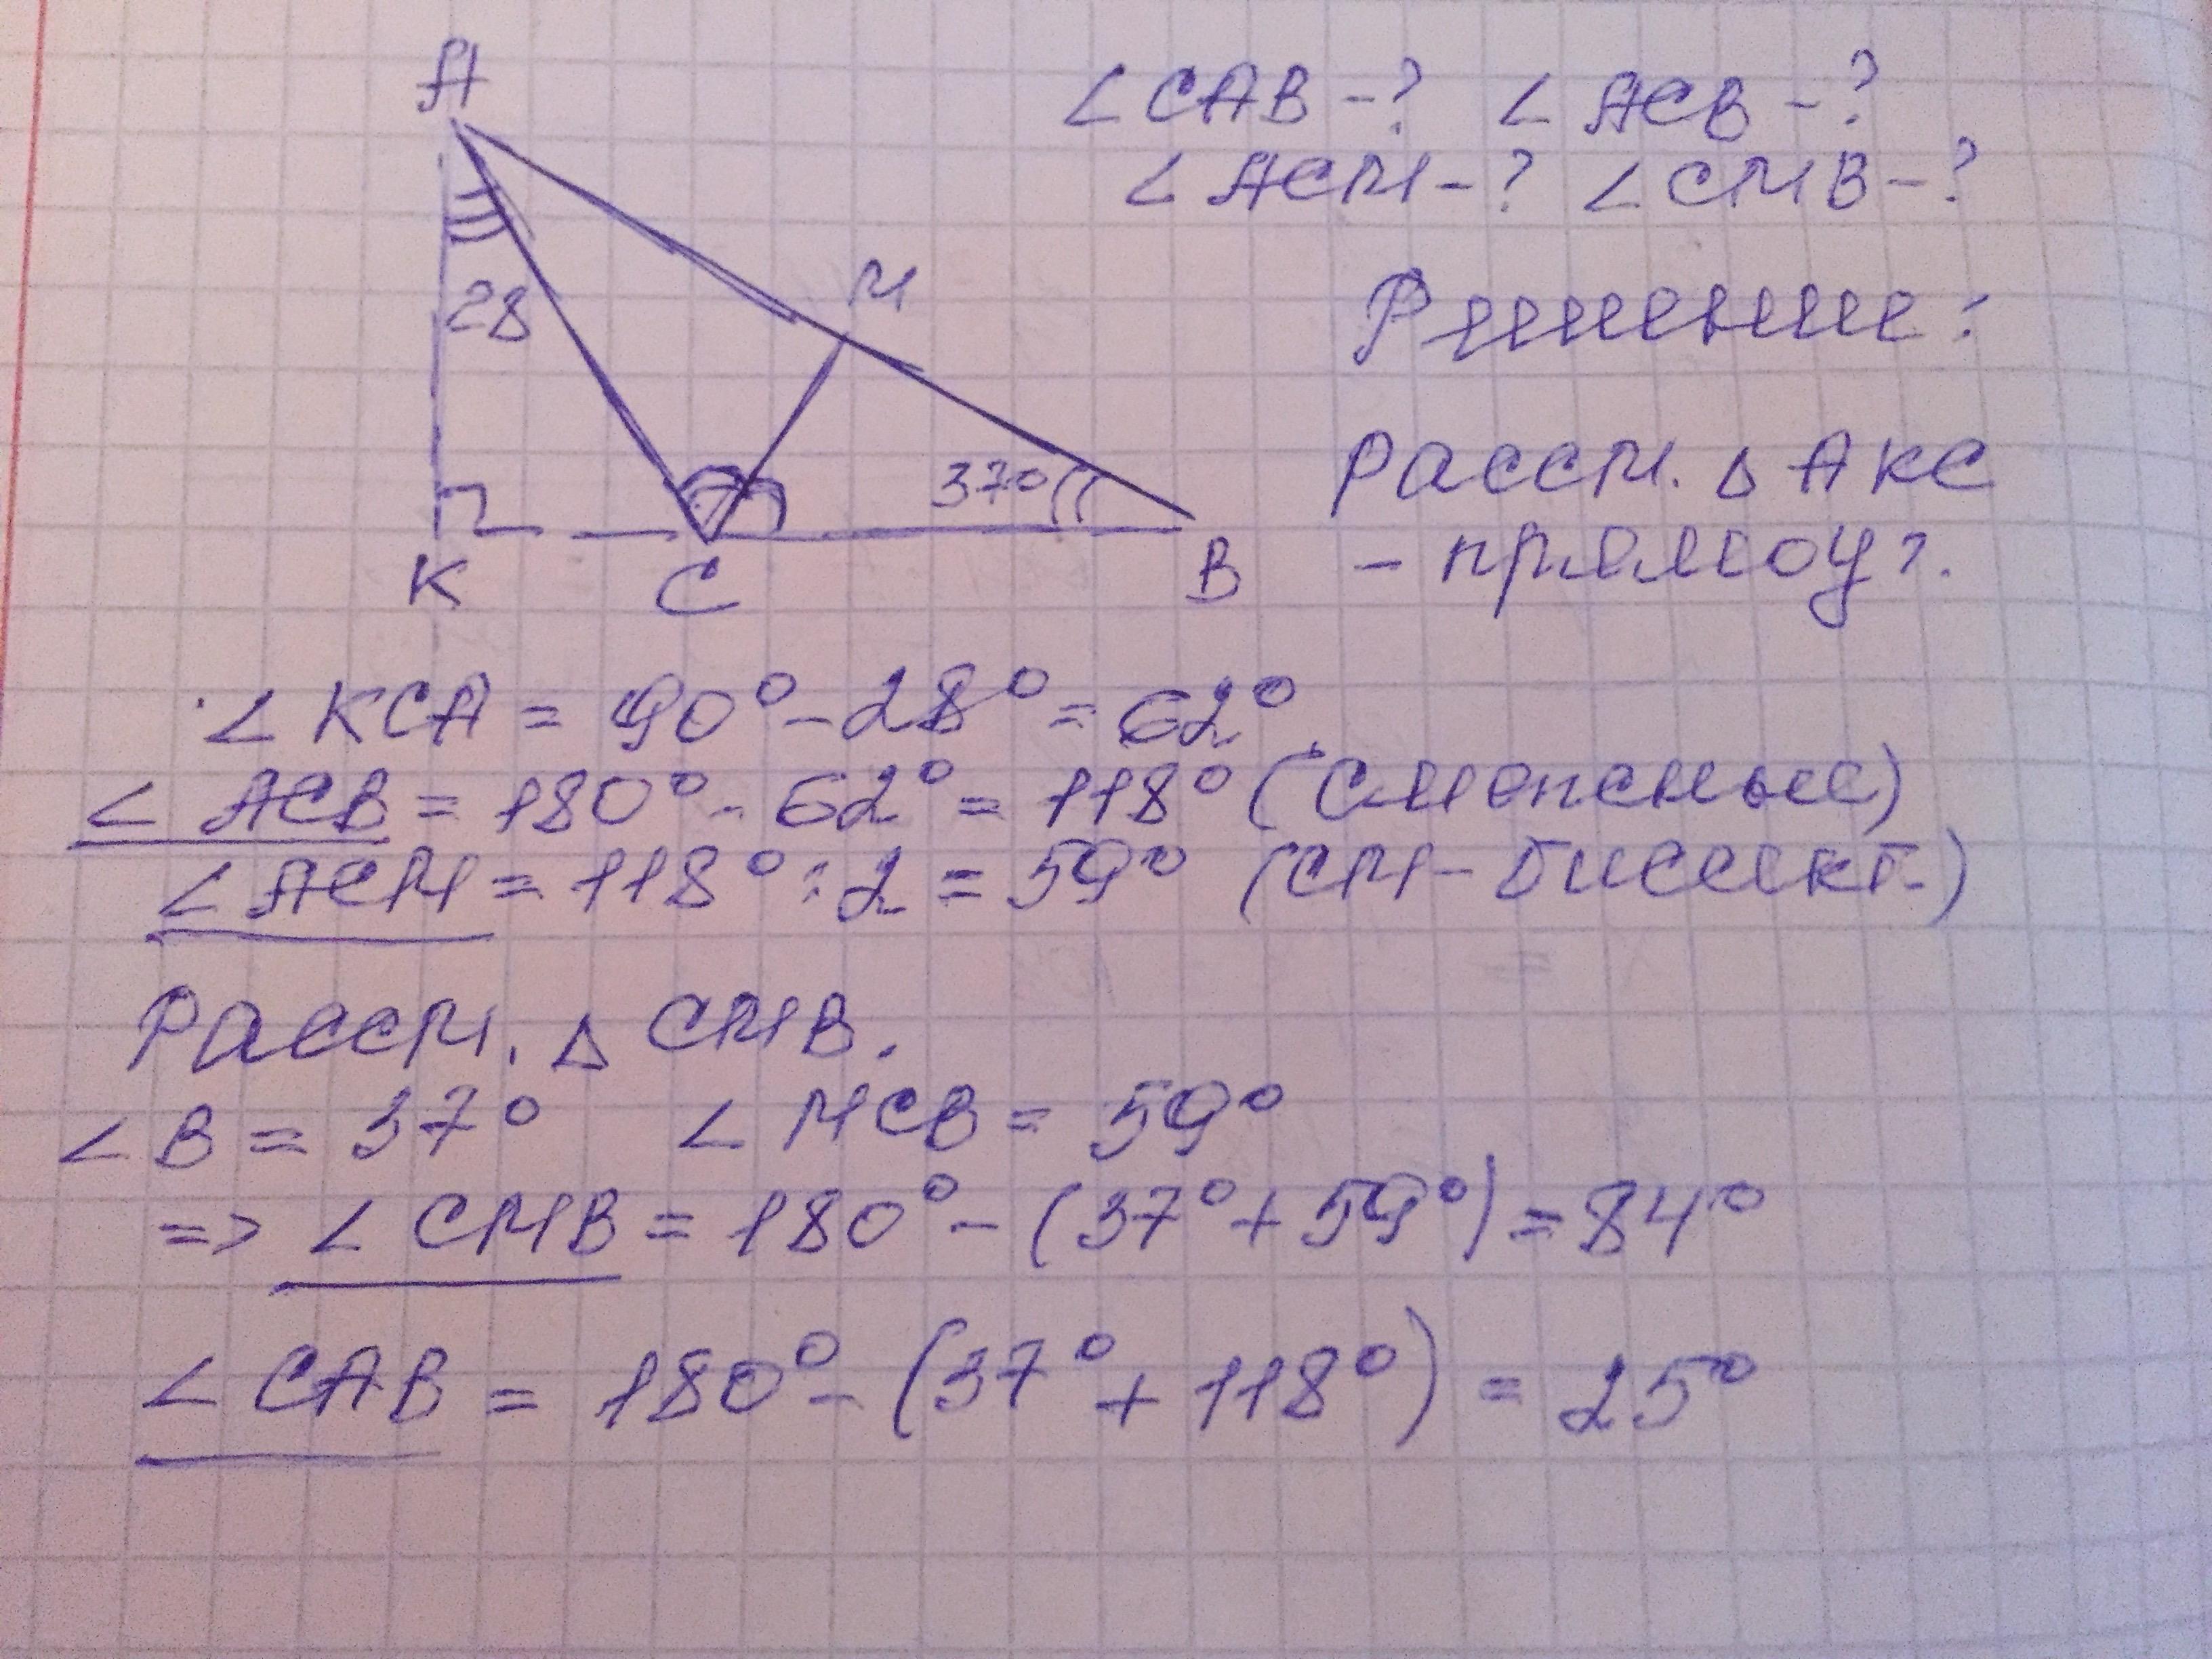 A
∠CAB - ? ∠ACB - ?
∠ACM - ? ∠CMB - ?
M
28
Решение:
37°
Рассм. △ AKC
- прямоуг.
K C B
∠KCA = 90° - 28° = 62°
∠ACB = 180° - 62° = 118° (смежные)
∠ACM = 118° : 2 = 59° (CM - биссект.)
Рассм. △ CMB.
∠B = 37° ∠MCB = 59°
=> ∠CMB = 180° - (37° + 59°) = 84°
∠CAB = 180° - (37° + 118°) = 25°